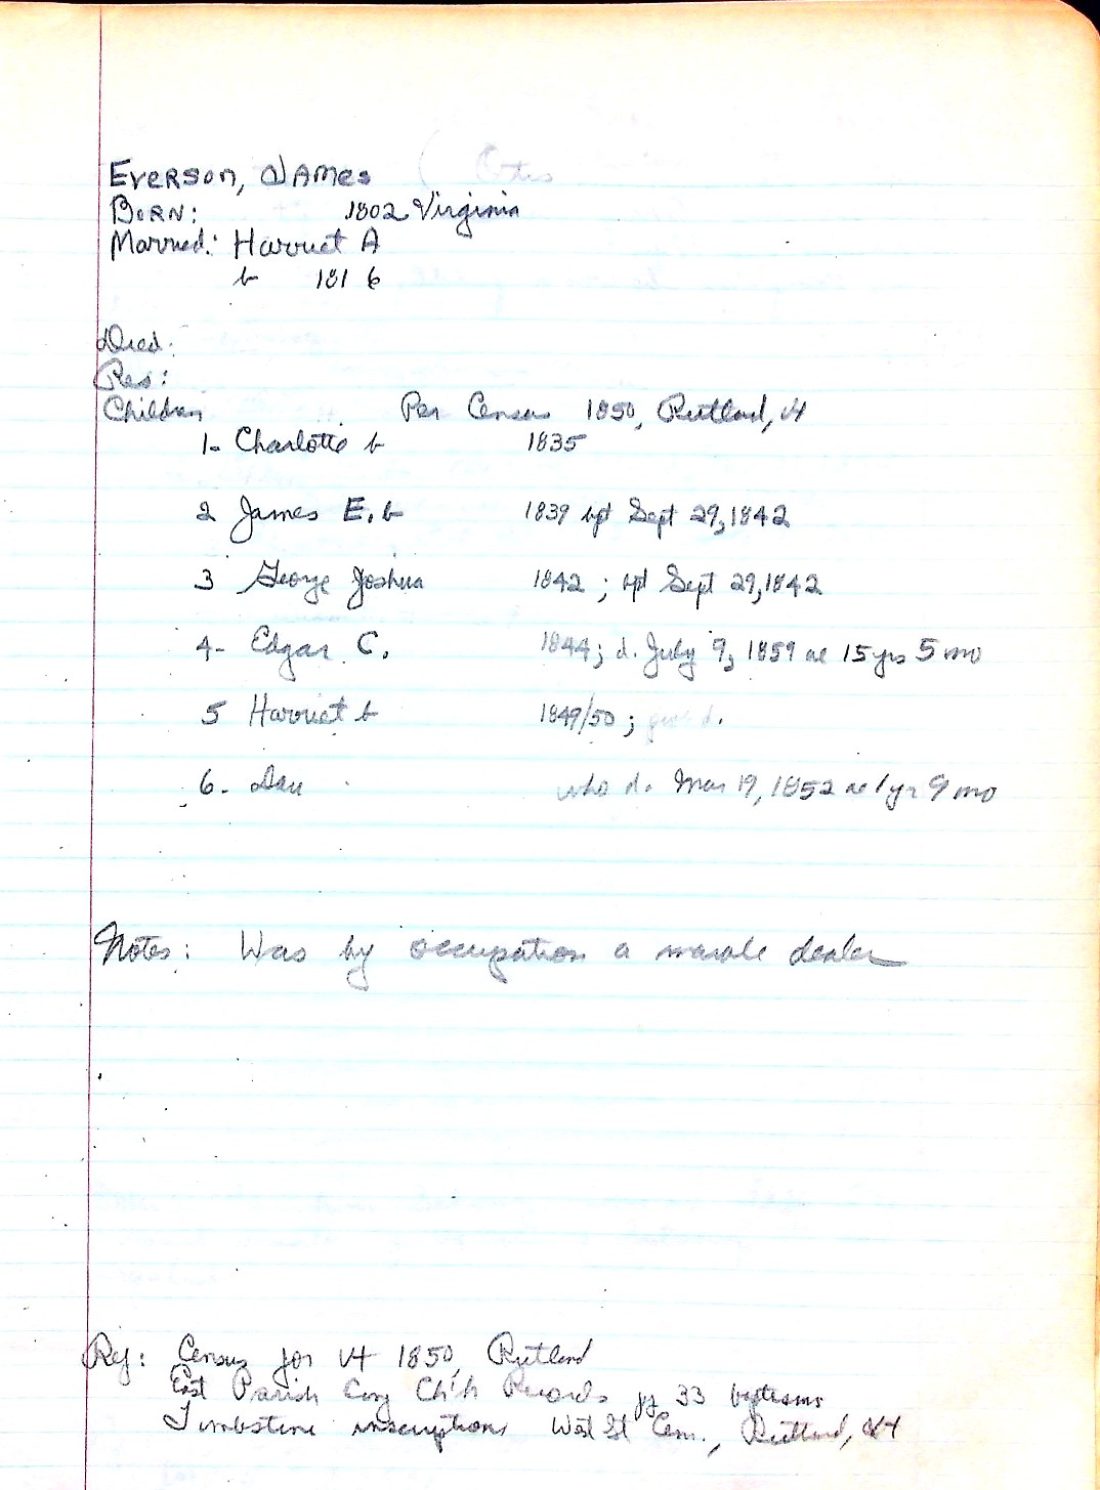 Everson, James
Born: 1802 Virginia
Married: Harriet A
b 1816
Died:
Res:
Children Per Census 1850, Rutland, Vt
1- Charlotte b 1835
2 James E. b 1839 bpt Sept 29, 1842
3 George Joshua 1842; bpt Sept 29, 1842
4- Edgar C. 1844; d. July 9, 1859 ae 15 yrs 5 mo
5 Harriet b 1849/50;
6- Dau who d. Mar 19, 1852 ae 1 yr 9 mo
Notes: Was by occupation a marble dealer
Ref: Census for Vt 1850, Rutland
East Parish Cong Ch'h Records pg 33 baptisms
Tombstone inscriptions West St Cem., Rutland, Vt